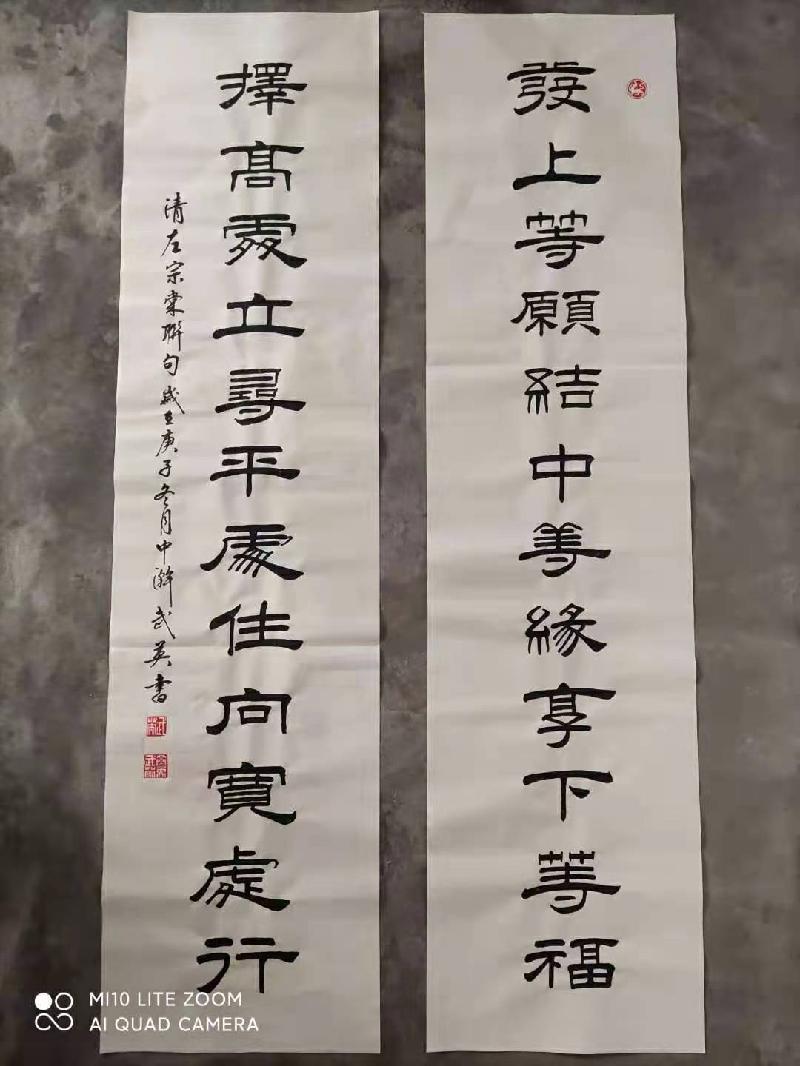 發上等願結中等緣享下等福
擇高處立尋平處住向寬處行
清左宗棠聯句歲在庚子冬月中澣武英書
MI10 LITE ZOOM
AI QUAD CAMERA